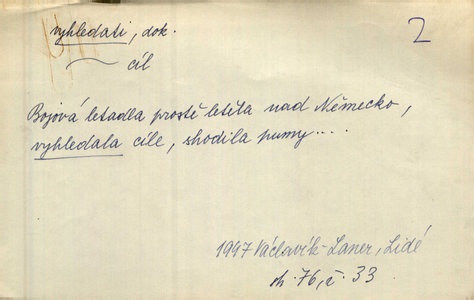 vyhledati, dok. 2
cíl
Bojová letadla prostě letěla nad Německo,
vyhledala cíle, shodila pumy....
1947 Václavík-Laner, Lidé
76, č. 33